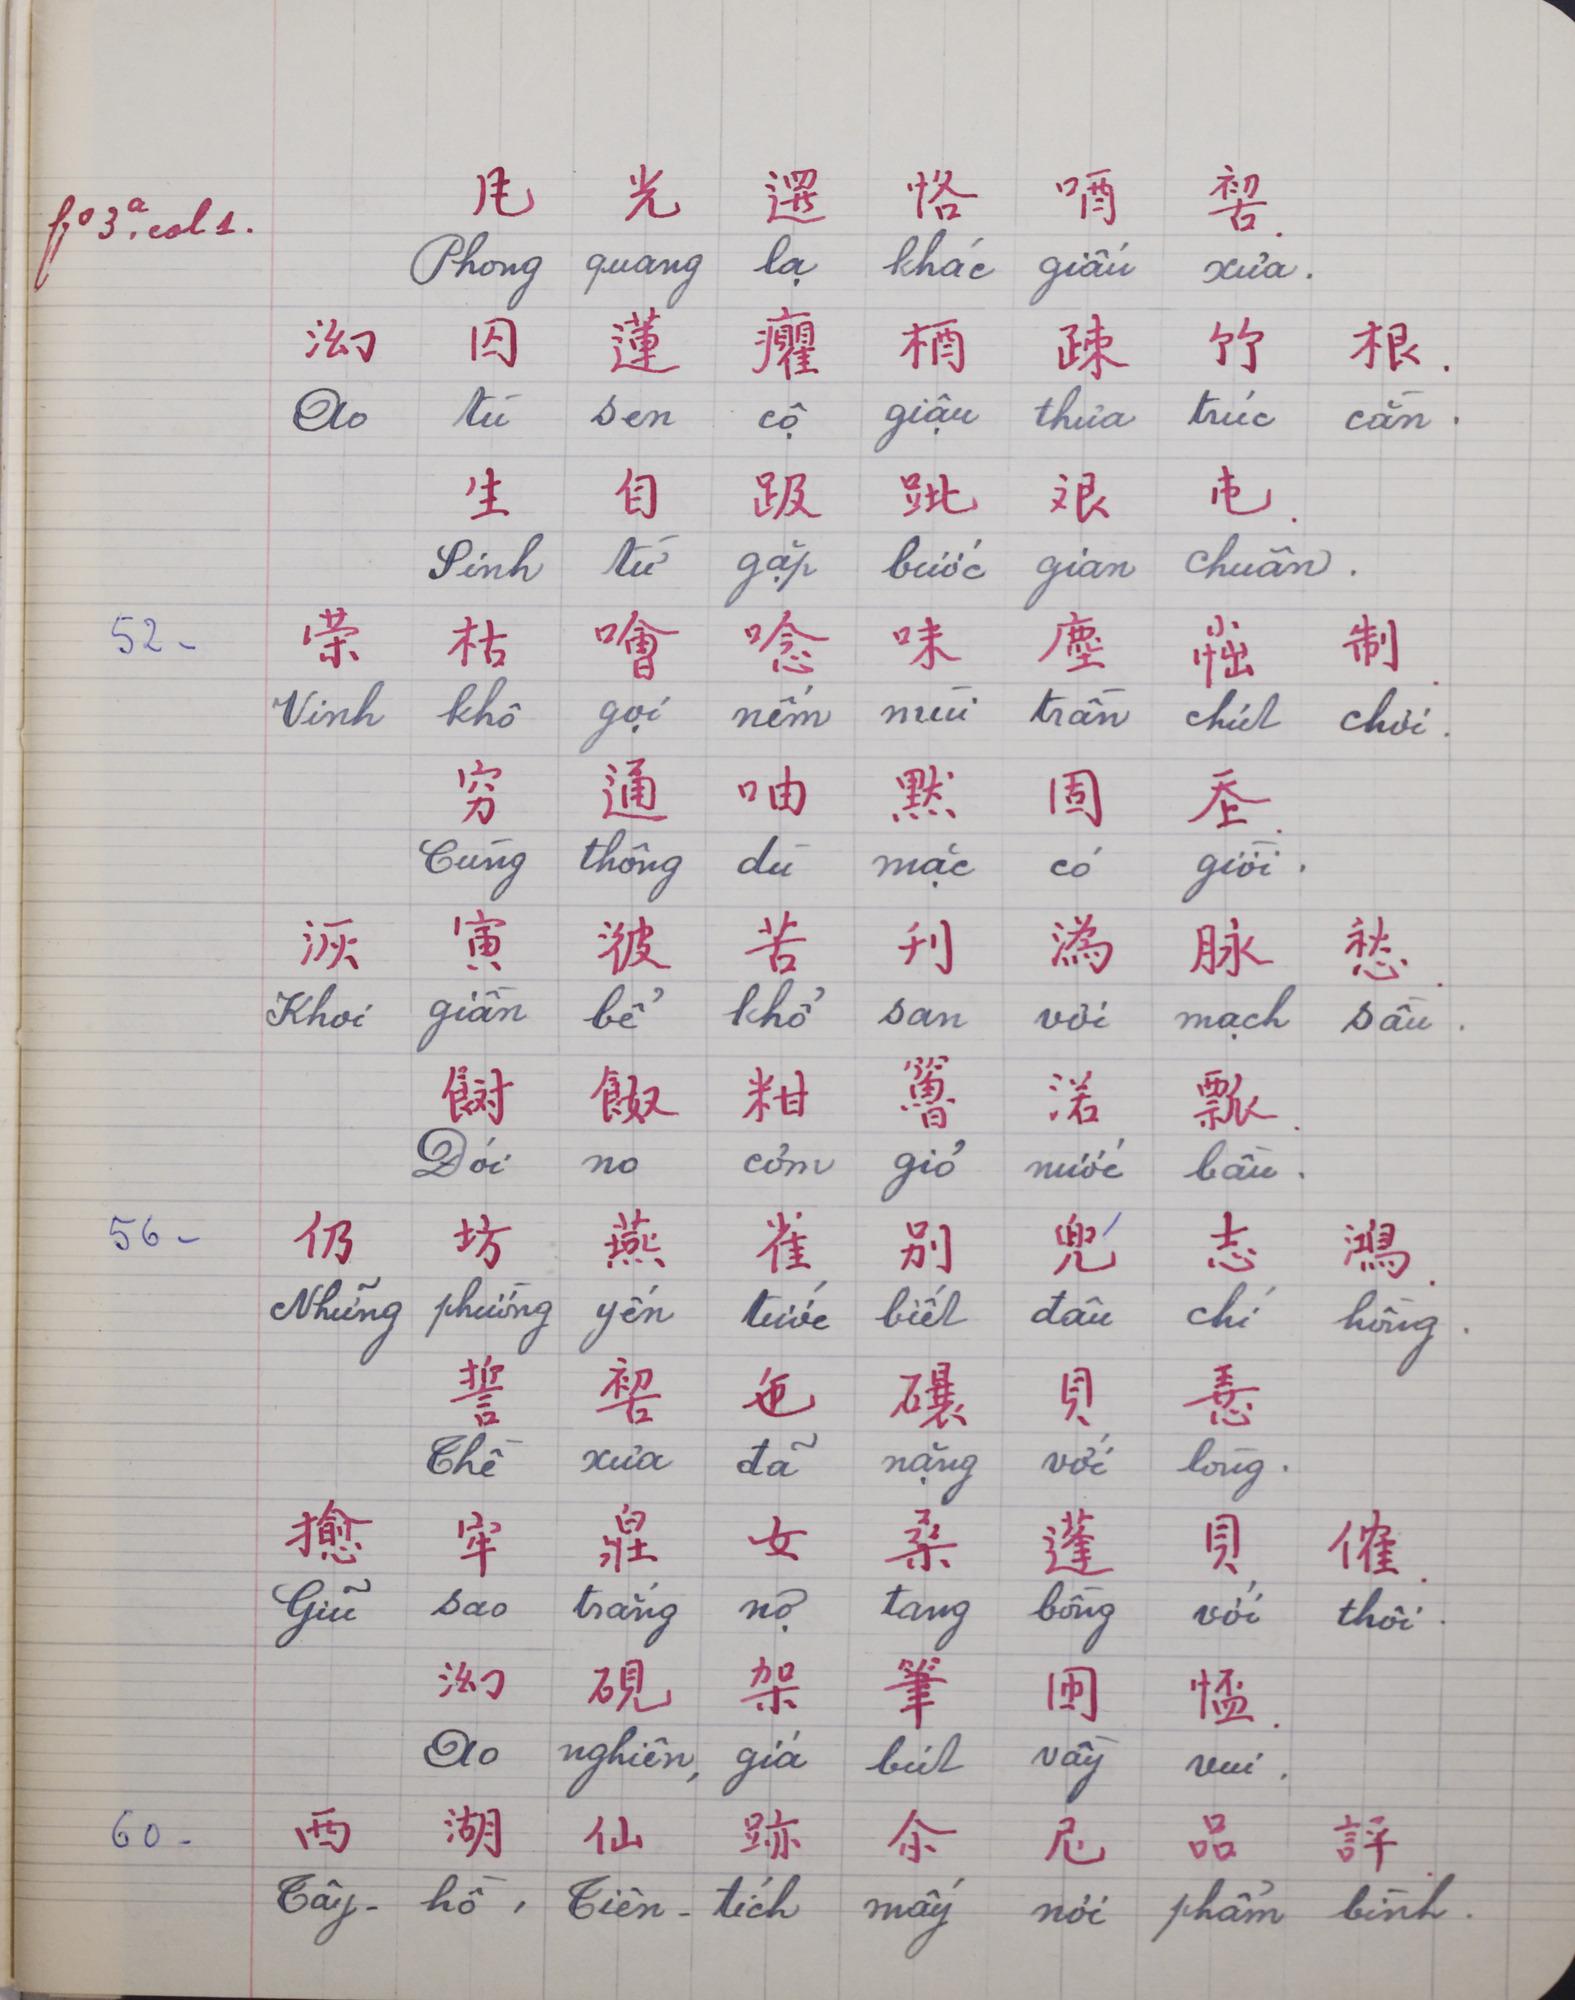 fº 3ª. col 1.
光 選 恪 𠶖 𥚄.
Phong quang lạ khác giấu xưa.
泑 囚 蓮 癯 楢 疎 竹 根.
Ao tù sen cộ giậu thưa trúc cằn.
生 自 趿 跐 艰 屯.
Sinh từ gặp bước gian chuân.
52- 荣 枯 噲 唸 味 塵 制.
Vinh khô gọi nếm mùi trần chút chơi.
穷 通 呦 默 固 𡗶.
Cùng thông dù mặc có giời.
洃 寅 㴜 苦 刊 潙 脉 愁.
Khơi giần bể khổ san vơi mạch sầu.
粓 渃 瓢.
Đói no cơm giỏ nước bầu.
56- 仍 坊 燕 雀 别 兜 志 鴻.
Những phường yến tước biết đâu chí hồng.
誓 𥚄 㐌 𥗾 貝 𢚸
Thề xưa đã nặng với lòng.
牢 女 桑 蓬 貝 傕.
Giữ sao trắng nợ tang bồng với thôi.
泑 硯 架 筆 𢚶.
Ao nghiên, giá bút vầy vui.
60- 西 湖 仙 跡 余 尼 品 評.
Tây-hồ, Tiên-tích mấy nơi phẩm bình.